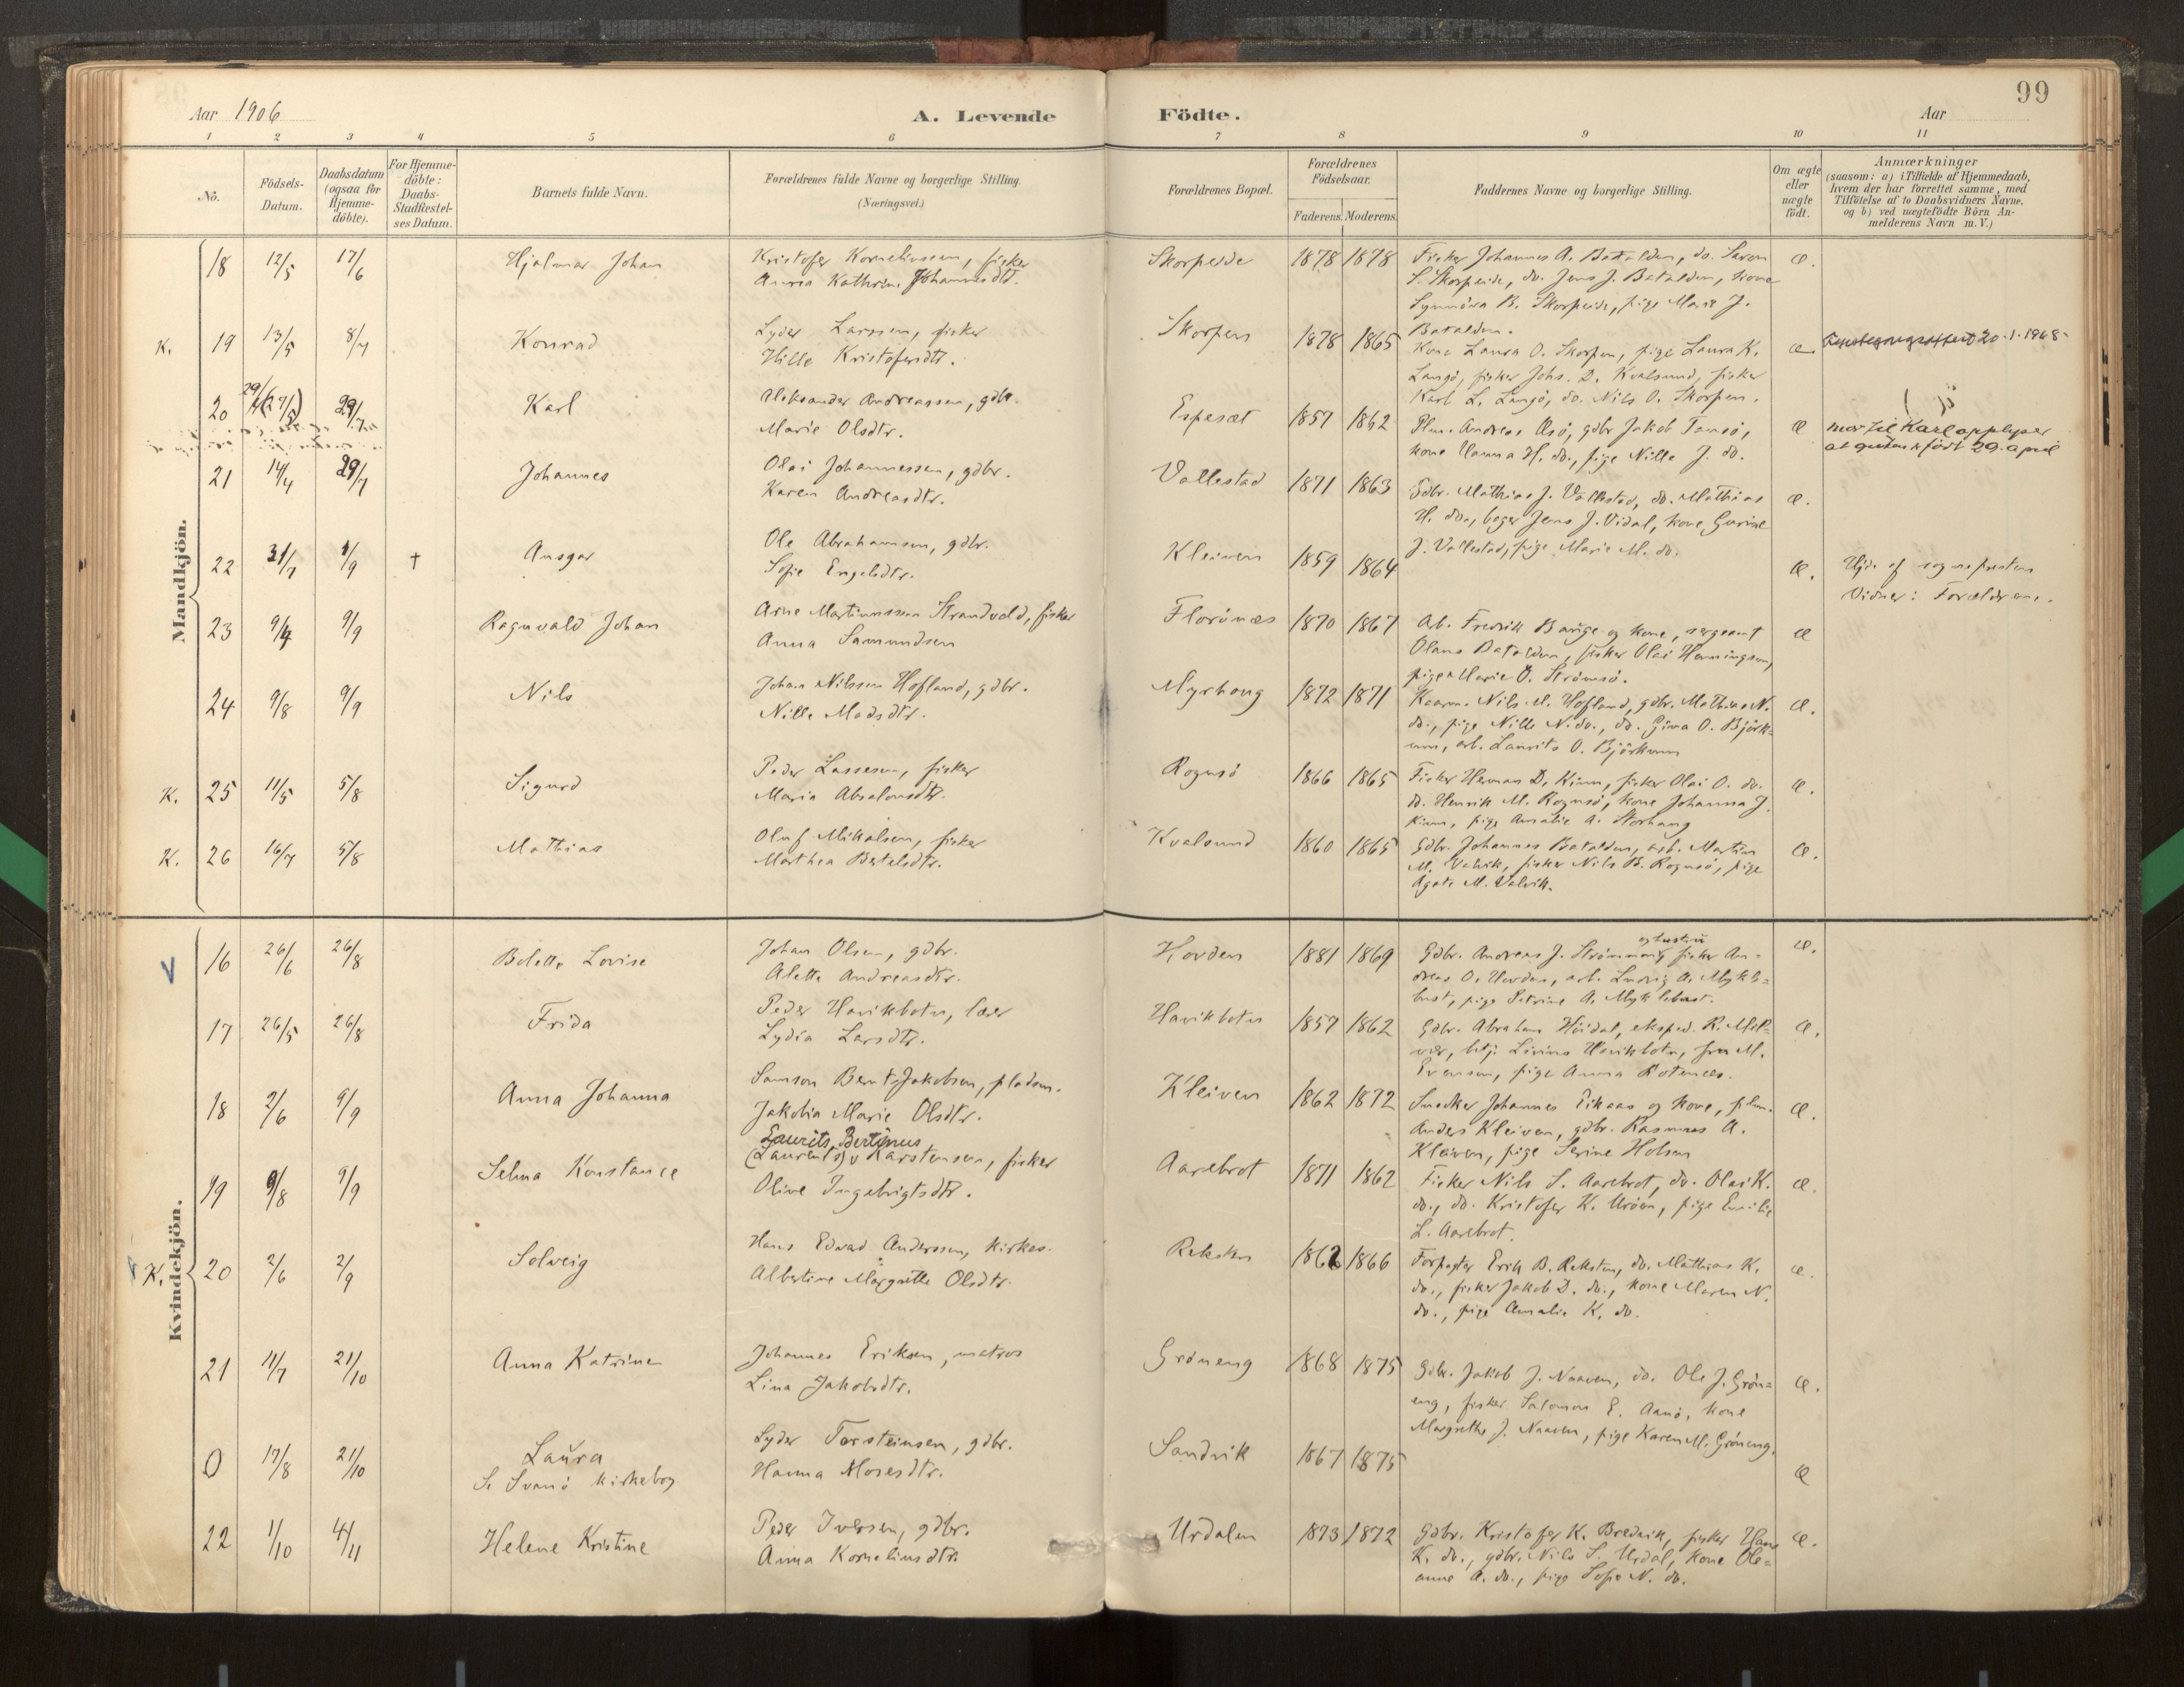 99
Aar 1906
A. Levende Födte.
Aar
1 2 3 4 5 6 7 8 9 10 11
No.
Födsels-Datum.
Daabsdatum (ogsaa for Hjemme-döbte).
For Hjemme-döbte: Daabs-Stadfæstel-ses Datum.
Barnets fulde Navn.
Forældrenes fulde Navne og borgerlige Stilling. (Næringsvei.)
Forældrenes Bopæl.
Forældrenes Födselsaar.
Faderens. Moderens.
Faddernes Navne og borgerlige Stilling.
Om ægte eller uægte födt.
Anmærkninger
(saasom: a) i Tilfælde af Hjemmedaab,
hvem der har forrettet samme, med
Tilföielse af to Daabsvidners Navne,
og b) ved uægtefödte Börn An-
melderens Navn m.V.)
Mandkjön.
18 12/5 17/6 Hjalmar Johan
Kristofer Korneliussen, fisker
Anna Kathrine Johannesdtr.
Skorpeide 1878 1878
Fisker Johannes A. Batalden, do.
S. Skorpeide, do. Jens J. Batalden, kone
Synnöva B. Skorpeide, pige Marie J.
Batalden.
æ.
K. 19 13/5 8/7 Konrad
Lyder Larssen, fisker
Hille Kristofersdtr.
Skorpen 1878 1865
Kone Laura O. Skorpen, pige Laura K.
Langö, fisker Johs. D. Kvalsund, fisker
Karl L. Langö, do. Nils O. Skorpen.
æ. 20.1.1968
20 29/4 (27/5) 29/7 Karl
Aleksander Andreassen, gdbr.
Marie Olsdtr.
Espeset 1857 1862
Andreas Asö, gdbr Jakob Tansö,
kone Hanna H. do., pige Nille J. do.
æ
mor til Karl opplyser
at gutten er født 29. april
21 14/4 29/7 Johannes
Olai Johannessen, gdbr.
Karen Andreasdtr.
Vallestad 1871 1863
Gdbr. Mathias J. Vallestad, do. Mathias
H. do., Jens J. Vidal, kone Gurine
J. Vallestad, pige Marie M. do.
æ.
22 31/7 1/9 † Ansgar
Ole Abrahamsen, gdbr.
Sofie Engelsdtr.
Kleiven 1859 1864
æ.
Hjd. af sognepresten
Vidner: Forældrene.
23 9/4 9/9 Ragnvald Johan
Arne Martinussen Strandvold, fisker
Anna Samundsen
Florönæs 1870 1867
Arb. Fredrik Barige og kone, sergeant
Olans Batalden, fisker Olai Henningsen,
pige Marie O. Strömsö.
æ
24 9/8 9/9 Nils
Johan Nilssen Hofland, gdbr.
Nille Madsdtr.
Myrhaug 1872 1871
Kaarm. Nils M. Hofland, gdbr. Mathias N.
do., pige Nille N. do., do. Gina O. Björk=
um, arb. Laurits O. Björkum
æ.
K. 25 11/5 5/8 Sigurd
Peder Lassesen, fisker
Maria Absalonsdtr.
Rognsö 1866 1865
Fisker Herman D. Kinn, fisker Olai O. do.
do. Henrik M. Rognsö, kone Johanna J.
Kinn, pige Amalie A. Storhaug
æ.
K. 26 16/7 5/8 Mathias
Oluf Mikalsen, fisker
Marthea Bertelsdtr.
Kvalsund 1860 1865
Gdbr. Johannes Batalden, arb. Martin
M. Valvik, fisker Nils B. Rognsö, pige
Agate M. Valvik.
æ.
Kvindekjön.
V 16 26/6 26/8 Bolette Lovise
Johan Olsen, gdbr.
Alette Andreasdtr.
Hovden 1881 1869
og hustru
Gdbr. Andreas J. Strömmen, fisker An=
dreas O. Hovden, arb. Ludvig A. Mykle=
bust, pige Petrine A. Myklebust.
æ.
17 26/5 26/8 Frida
Peder Havikbotn, lærer
Lydia Larsdtr.
Havikbotn 1857 1862
Gdbr. Abraham Höidal, eksped. R. Mel=
vær, betj. Livius Havikbotn, fru M.
Evensen, pige Anna Botnæes.
æ.
18 2/6 9/9 Anna Johanna
Samson Bernt Jakobsen, pladsm.
Jakobia Marie Olsdtr.
Kleiven 1862 1872
Snedker Johannes Eikaas og kone, plm.
Anders Kleiven, gdbr. Rasmus A.
Kleiven, pige Serine Holsen
æ.
19 9/8 9/9 Selma Konstance
Laurits Bertinus
(Laurents) Karstensen, fisker
Olive Ingebrigtsdtr.
Aarebrot 1871 1862
Fisker Nils S. Aarebrot, do. Olai K.
do., do. Kristofer K. Uröen, pige Emilie
L. Aarebrot.
æ.
K. 20 2/6 2/9 Solveig
Hans Edvard Anderssen, kirkes.
Albertine Margrethe Olsdtr.
Reksten 1862 1866
Forpagter Erik B. Reksten, do. Mathias K.
do., fisker Jakob D. do., kone Maren N.
do., pige Amalie K. do.
æ.
21 11/7 21/10 Anna Katrine
Johannes Eriksen, matros
Lina Jakobsdtr.
Gröneng 1868 1875
Gdbr. Jakob J. Naaven, do. Ole J. Grön=
eng, fisker Salomon E. Aanö, kone
Margrethe J. Naaven, pige Karen M. Gröneng.
æ.
0 17/8 21/10 Laura
S. Svanö kirkebog
Lyder Torsteinsen, gdbr.
Hanna Mosesdtr.
Sandvik 1867 1875
æ
22 1/10 4/11 Helene Kristine
Peder Iversen, gdbr.
Anna Korneliusdtr.
Urdalen 1873 1872
Gdbr. Kristofer K. Bredvik, fisker Hans
K. do., gdbr. Nils S. Urdal, kone Ole=
anne A. do., pige Sofie N. do.
æ.